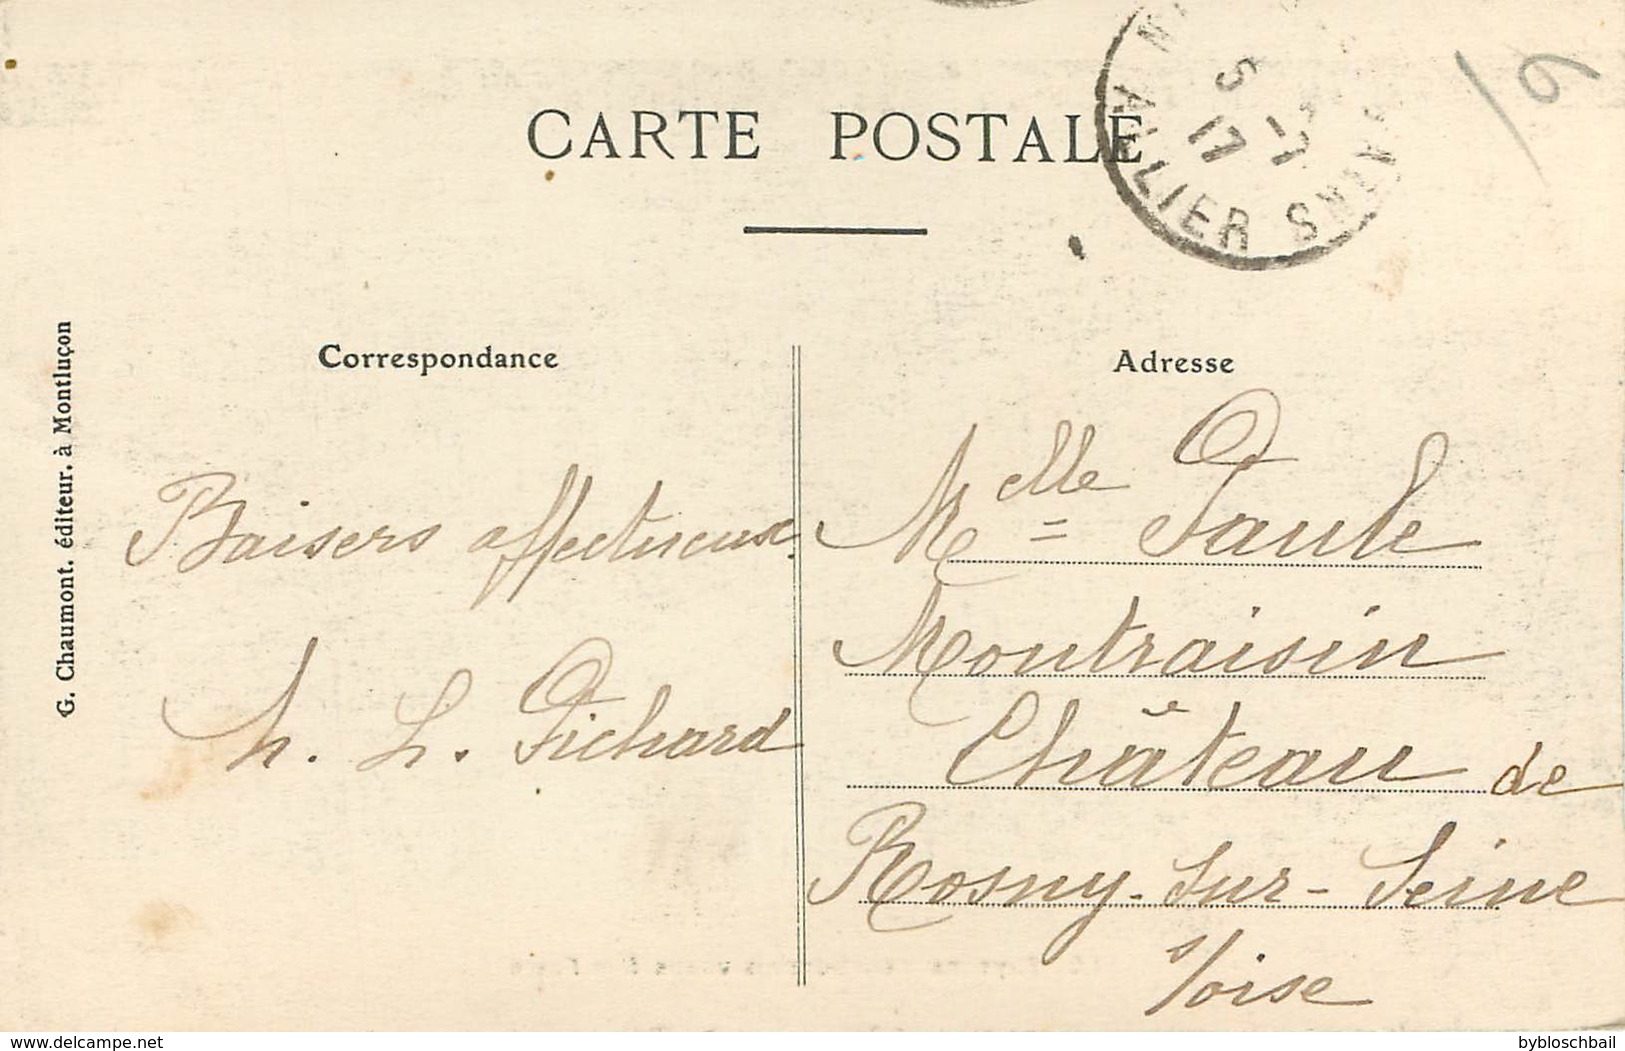 CARTE POSTALE
5 -7
17
ALLIER
6
G. Chaumont. éditeur. à Montluçon
Correspondance
Baisers affectueux.
h. L. Pichard
Adresse
Melle Paule
Montraisin
Château de
Rosny-sur-Seine
s/oise
www.delcampe.net
bybloschbail